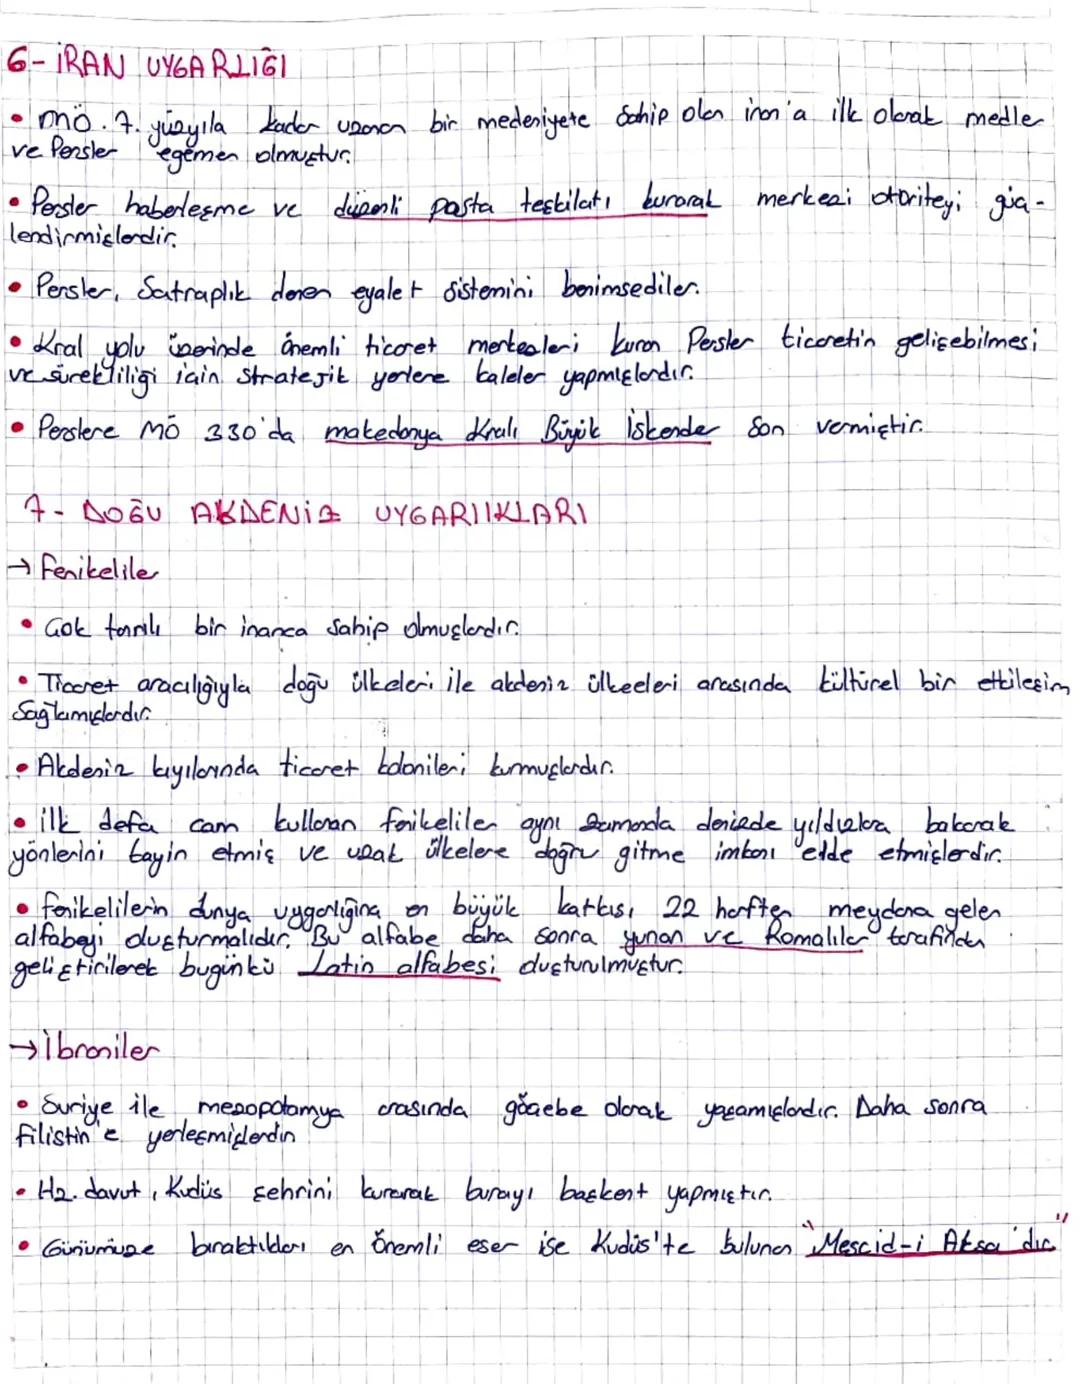 6- İRAN UYGARLIĞI
• MÖ. 7. yüzyıla kadar uzanan bir medeniyete sahip olan iran'a ilk olarak medler
ve Persler egemen olmuştur.
• Persler haberleşme ve düzenli posta teşkilatı kurarak merkezi otoriteyi güç-
lendirmişlerdir.
• Persler, Satraplık denen eyalet sistemini benimsediler.
• Kral yolu üzerinde önemli ticaret merkezleri kuran Persler ticaretin gelişebilmesi
ve sürekliliği için stratejik yerlere kaleler yapmışlardır.
• Perslere MÖ 330'da makedonya Kralı Büyük İskender son vermiştir.
7- DOĞU AKDENİZ UYGARIIKLARI
→ Fenikeliler
• Çok tanrılı bir inanca sahip olmuşlardır.
• Ticaret aracılığıyla doğu ülkeleri ile akdeniz ülkeeleri arasında kültürel bir etkileşim
Sağlamışlardır.
• Akdeniz kıyılarında ticaret kolonileri kurmuşlardır.
• ilk defa cam kullanan fenikeliler aynı zamanda denizde yıldızlara bakarak
yönlerini tayin etmiş ve uzak ülkelere doğru gitme imkanı elde etmişlerdir.
• fenikelilerin dünya uygarlığına en büyük katkısı 22 harften meydana gelen
alfabeyi oluşturmalıdır. Bu alfabe daha sonra yunan ve Romalılar tarafından
geliştirilerek bugünkü Latin alfabesi oluşturulmuştur.
→ İbraniler
• Suriye ile mezopotamya arasında göçebe olarak yaşamışlardır. Daha sonra
filistin'e yerleşmişlerdir
• Hz. davut, Kudüs şehrini kurarak burayı başkent yapmıştır.
• Günümüze bıraktıkları en önemli eser ise Kudüs'te bulunan "Mescid-i Aksa'dır."